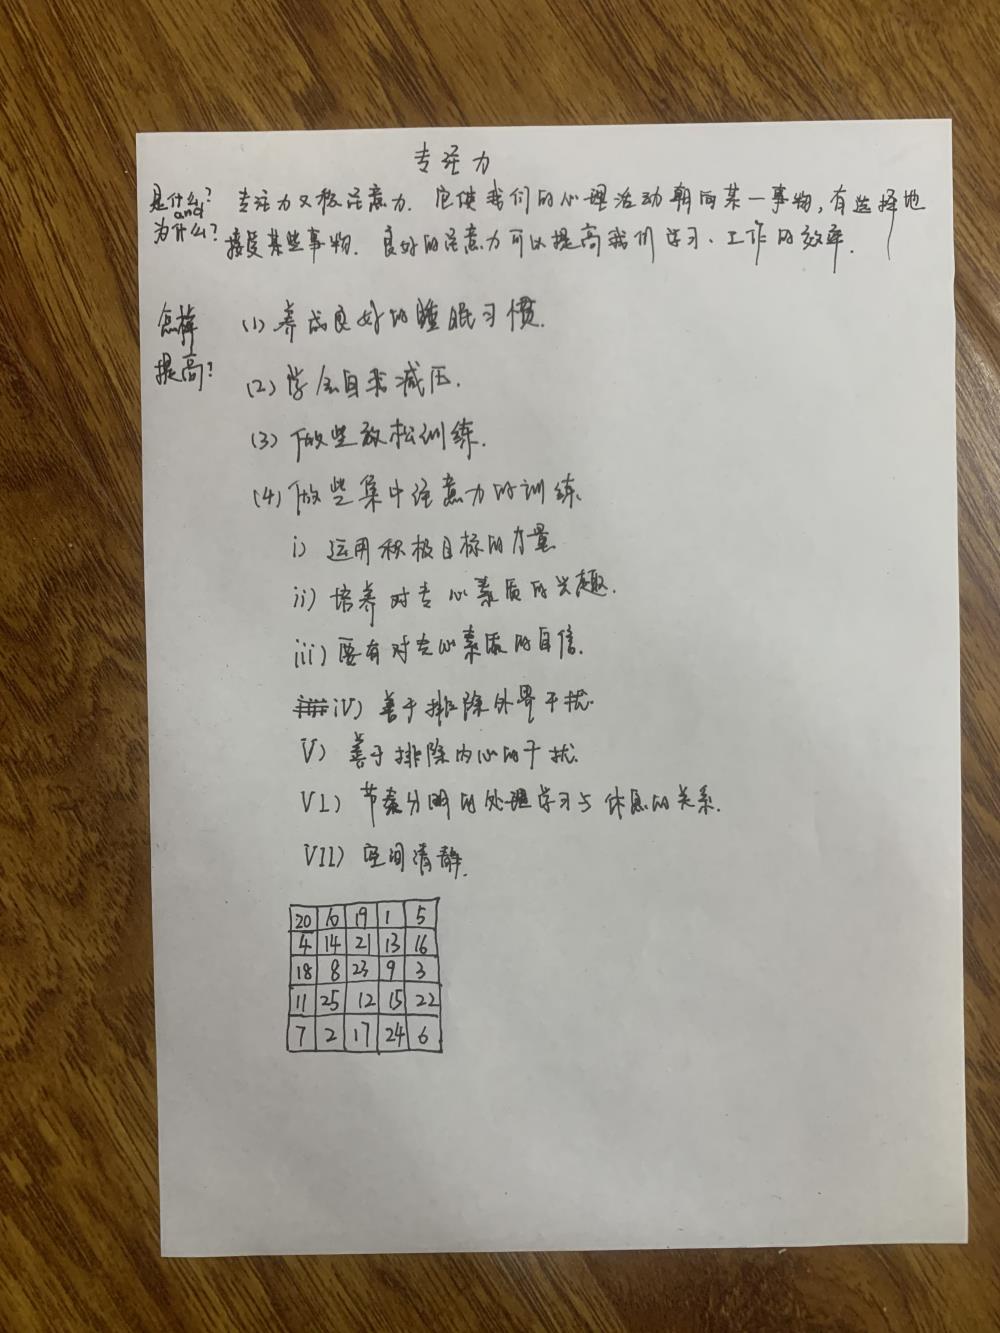 专注力
是什么? and 为什么?
专注力又称注意力. 它使我们的心理活动朝向某一事物, 有选择地
接受某些事物. 良好的注意力可以提高我们学习、工作的效率.
怎样
提高?
(1) 养成良好的睡眠习惯.
(2) 学会自我减压.
(3) 做些放松训练.
(4) 做些集中注意力的训练.
i) 运用积极目标的力量
ii) 培养对专心素质的兴趣.
iii) 要有对专心素质的自信.
iv) 善于排除外界干扰.
V) 善于排除内心的干扰.
VI) 节奏分明的处理学习与休息的关系.
VII) 空间清静.
20 10 19 1 5
4 14 21 13 16
18 8 23 9 3
11 25 12 15 22
7 2 17 24 6